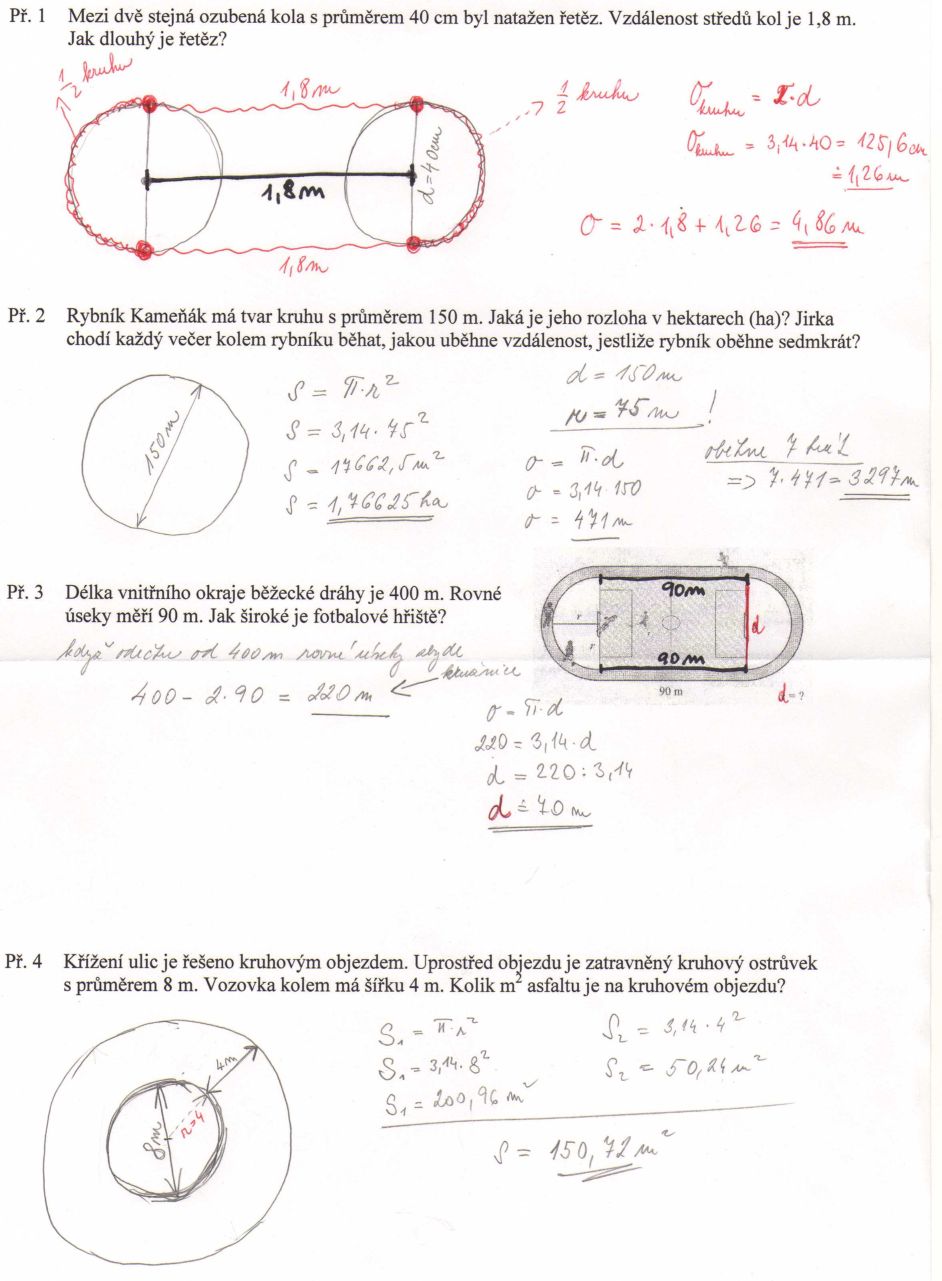 Př. 1 Mezi dvě stejná ozubená kola s průměrem 40 cm byl natažen řetěz. Vzdálenost středů kol je 1,8 m.
Jak dlouhý je řetěz?
1/2 kruhu
1,8m
1/2 kruhu
d=40cm
1,8m
1,8m
O kruhu = π·d
O kruhu = 3,14·40 = 125,6cm
≐ 1,26m
O = 2·1,8 + 1,26 = 4,86 m
Př. 2 Rybník Kameňák má tvar kruhu s průměrem 150 m. Jaká je jeho rozloha v hektarech (ha)? Jirka
chodí každý večer kolem rybníku běhat, jakou uběhne vzdálenost, jestliže rybník oběhne sedmkrát?
150m
S = π·r²
S = 3,14·75²
S = 17662,5m²
S = 1,76625ha
d = 150m
r = 75m !
o = π·d
o = 3,14·150
o = 471m
oběhne 7 krát
=> 7·471= 3297m
Př. 3 Délka vnitřního okraje běžecké dráhy je 400 m. Rovné
úseky měří 90 m. Jak široké je fotbalové hřiště?
90m
r
r
d
90m
90 m
d = ?
když odečtu od 400m rovné úseky
400 - 2·90 = 220 m ← kružnice
o = π·d
220 = 3,14·d
d = 220 : 3,14
d ≐ 70 m
Př. 4 Křížení ulic je řešeno kruhovým objezdem. Uprostřed objezdu je zatravněný kruhový ostrůvek
s průměrem 8 m. Vozovka kolem má šířku 4 m. Kolik m² asfaltu je na kruhovém objezdu?
4m
8m
r=4
S₁ = π·r²
S₁ = 3,14·8²
S₁ = 200,96 m²
S₂ = 3,14·4²
S₂ = 50,24 m²
S = 150,72 m²